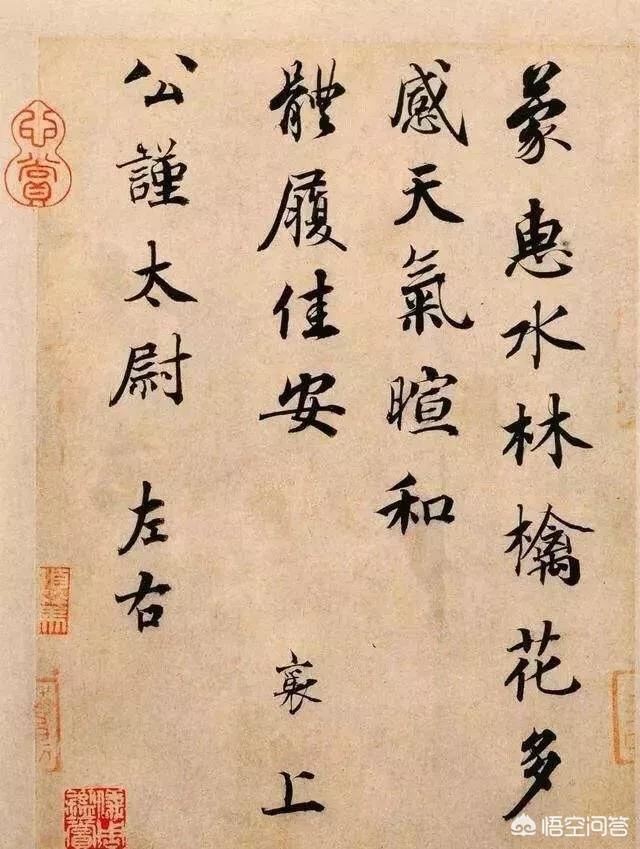 蒙惠水林檎花多
感天氣暄和
體履佳安
襄上
公謹太尉 左右
悟空问答